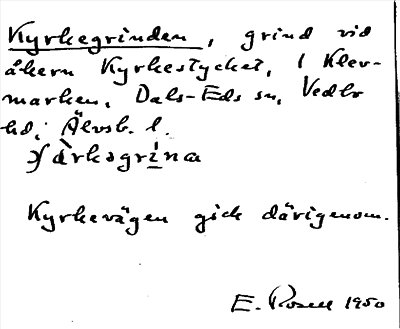 Kyrkegrinden, grind vid
åkern Kyrkestycket, i Klev-
marken, Dals-Eds sn, Vedbo
hd, Älvsb. l.
Kyrkevägen gick därigenom.
E. Rosell 1950